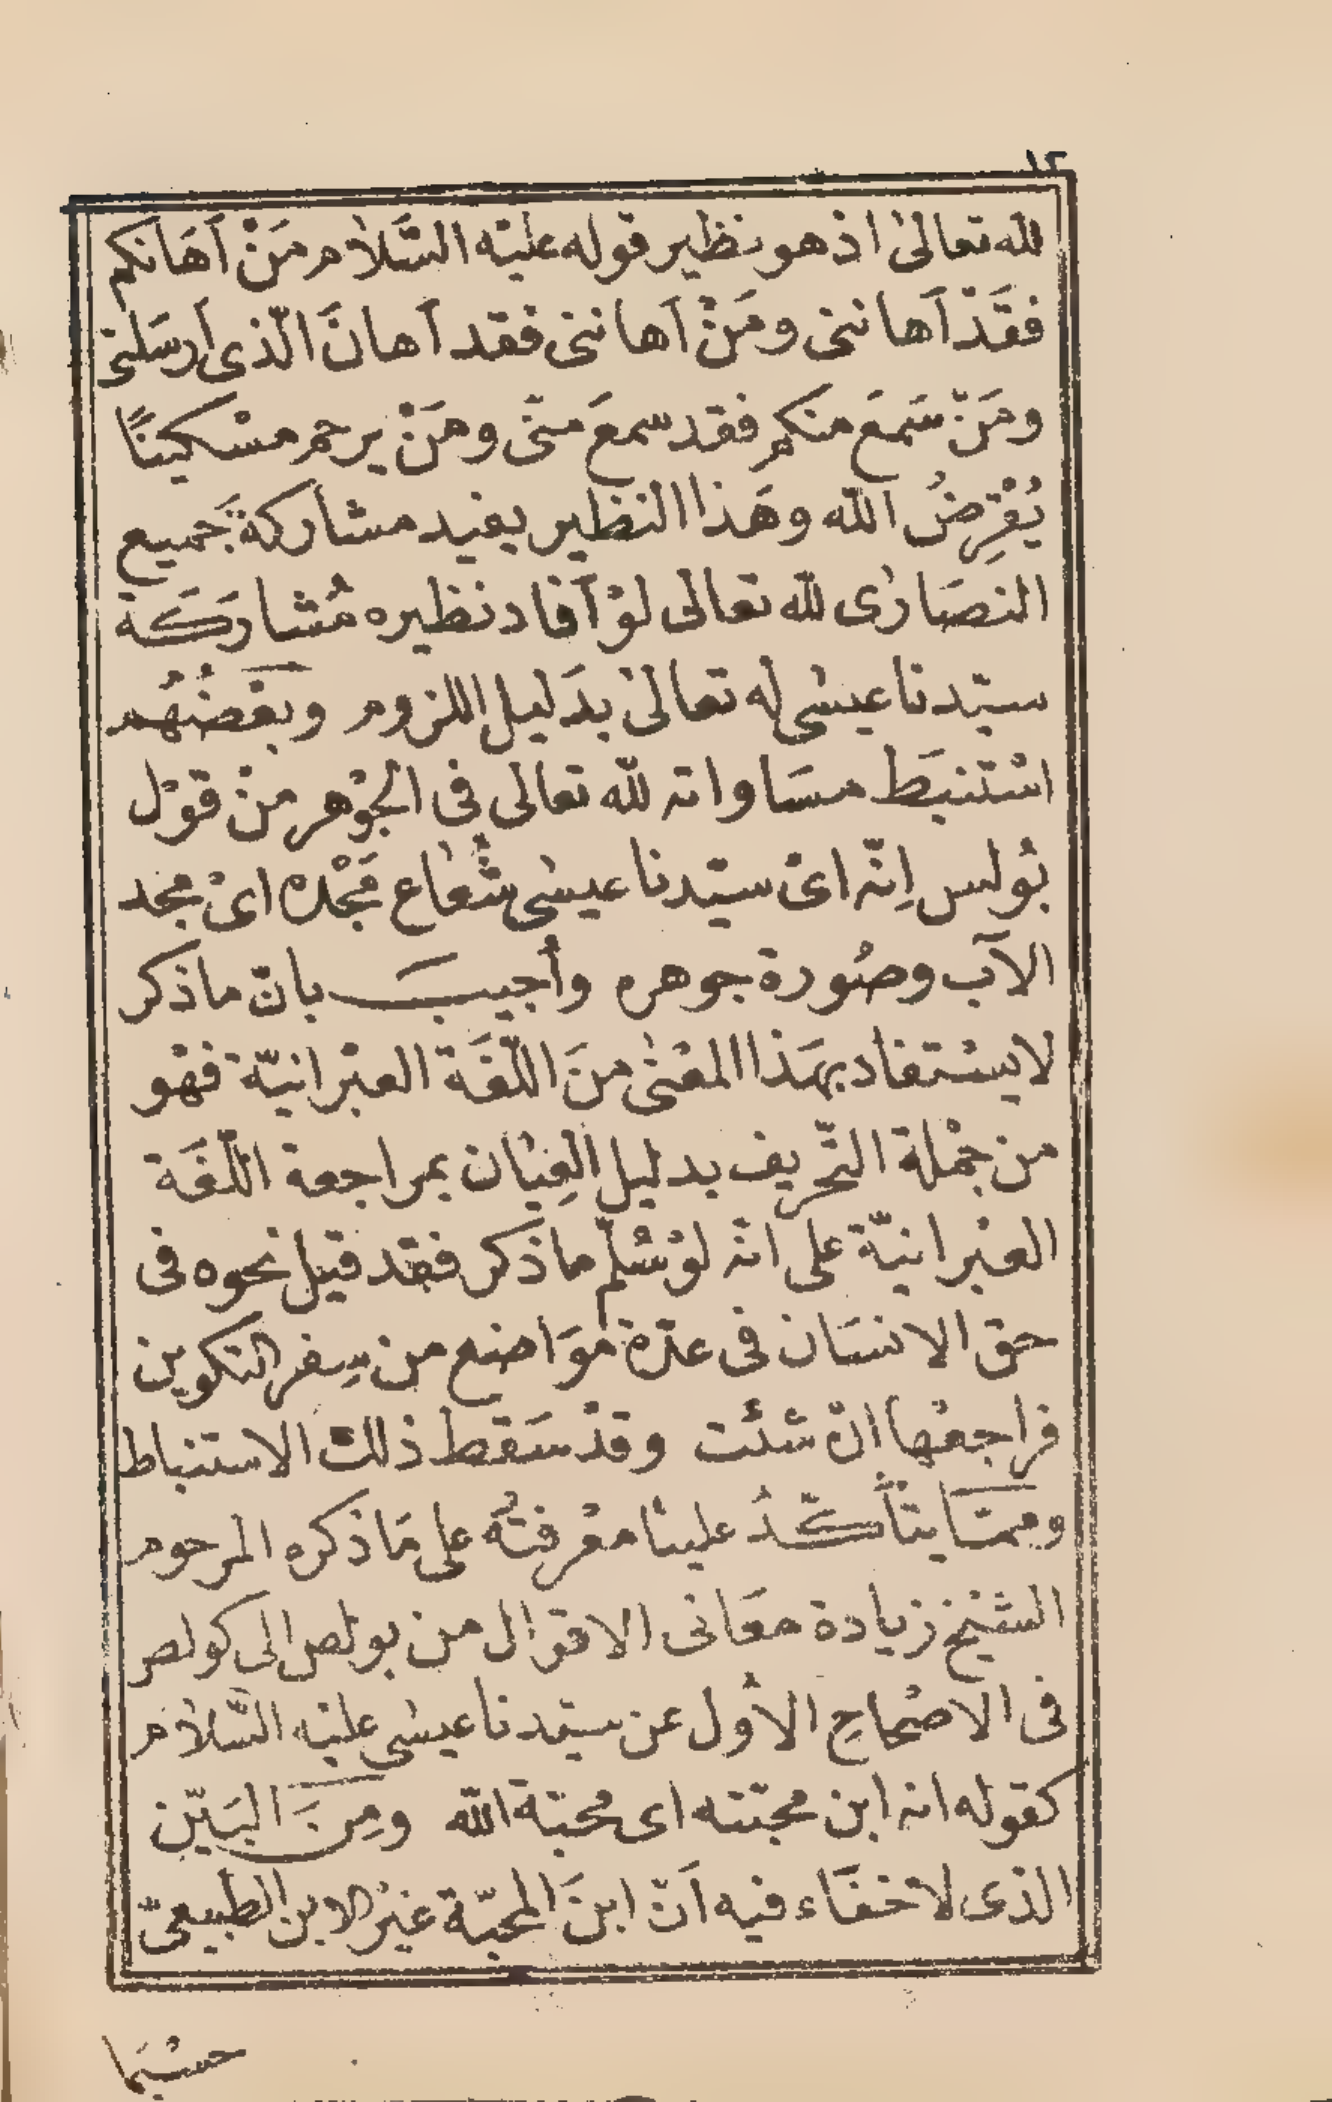 ١٢
لله تعالىٰ اذ هو نظير قوله عليْه السَّلام مَنْ اَهَانكم
فقَدْ اَهاننى ومَنْ اَهاننى فقد اَهانَ الّذى اَرسَلنى
ومَنْ سَمعَ منكم فقد سمعَ منّى ومَنْ يرحم مسْكينًا
يُقْرِضُ اللّه وهَذا النظير يفيد مشاركة جَميع
النصَارىٰ للّه تعالى لوْ اَفاد نظيره مُشاركَة
سيّدنا عيسٰى له تعالىٰ بدَليل اللزوم وبَعْضُهُم
اسْتنبَط مسَاواته للّه تعالى فى الجوْهر منْ قوْل
بُولس اِنّه اىْ سيّدنا عيسٰى شُعاع مَجْده اىْ مجد
الآب وصُورة جوهره وأُجيبَ بانّ ماذكر
لا يسْتفاد بهَذا المعْنٰى منَ اللّغَة العبْرانيّة فهْو
من جُمْلة التّحْريف بدليل العِيَان بمراجعة اللّغَة
العبْرانيّة على انّه لوْ سُلّم ما ذكر فقد قيل نحوه فى
حق الانسَان فى عدّة مَوَاضع من سِفر التكوين
فراجعْها انْ شئت وقدْ سَقط ذلك الاستنباط
وممَّا يتأكّدُ علينا معْرفتُه على مَا ذكره المرحوم
الشيْخ زيادة معَانى الاقوَال من بولص الى كولص
فى الاصْحاحِ الاُول عن سيّدنا عيسٰى عليْه السَّلام
كقوله انه ابن محبّته اى محبّة اللّه ومِنَ البَيّن
الذى لاخفَاء فيه اَنّ ابنَ المحبّة غيْر الابن الطبيعىّ
حسْبَما